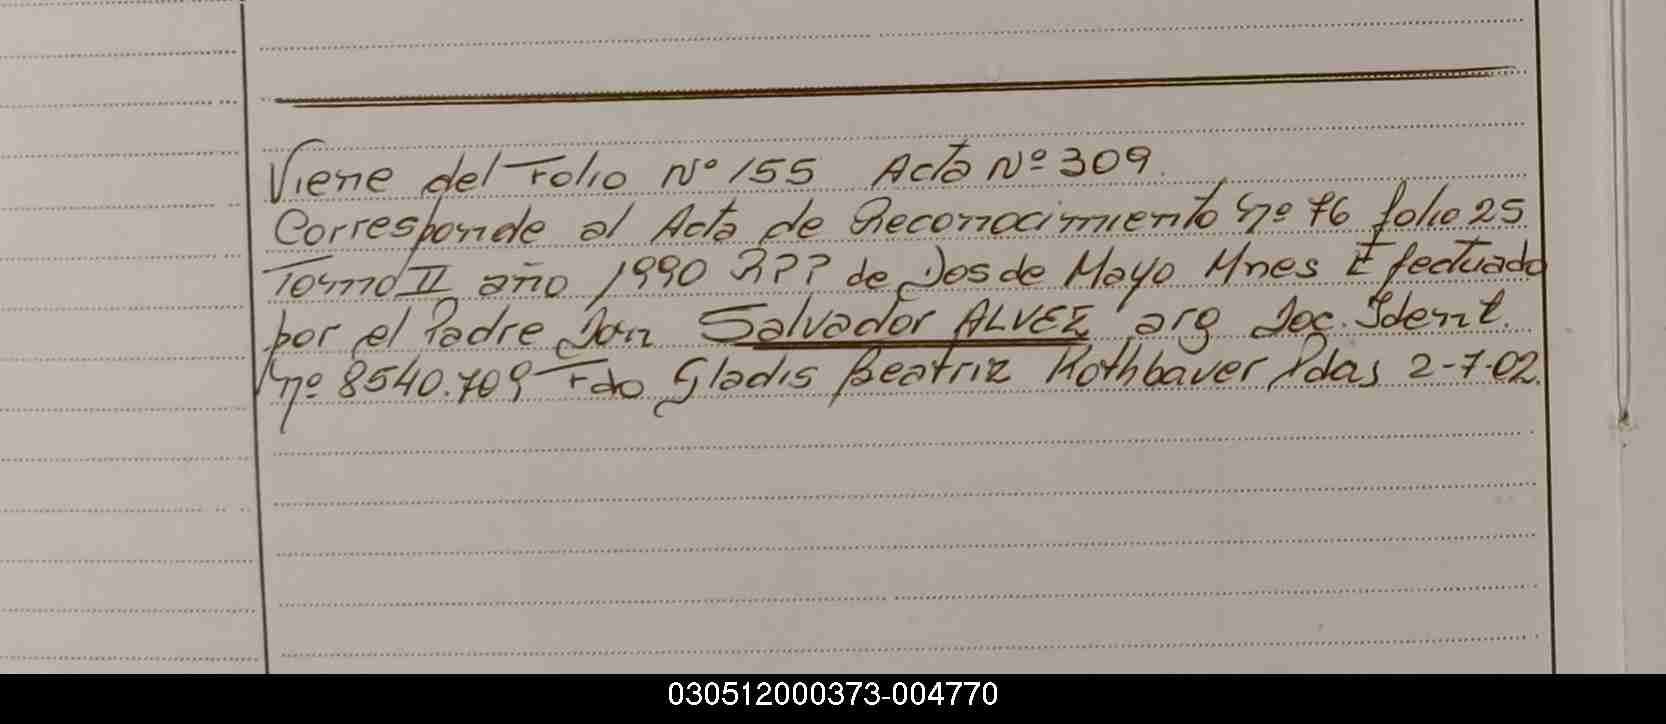 Viene del Folio Nº 155 Acta Nº 309.
Corresponde al Acta de Reconocimiento nº 76 folio 25
Tomo II año 1990 RPP de Dos de Mayo Mnes Efectuado
por el Padre Don Salvador ALVEZ arg Doc. Ident.
nº 8540.709 Fdo Gladis Beatriz Rothbaver Pdas 2-7-02.
030512000373-004770